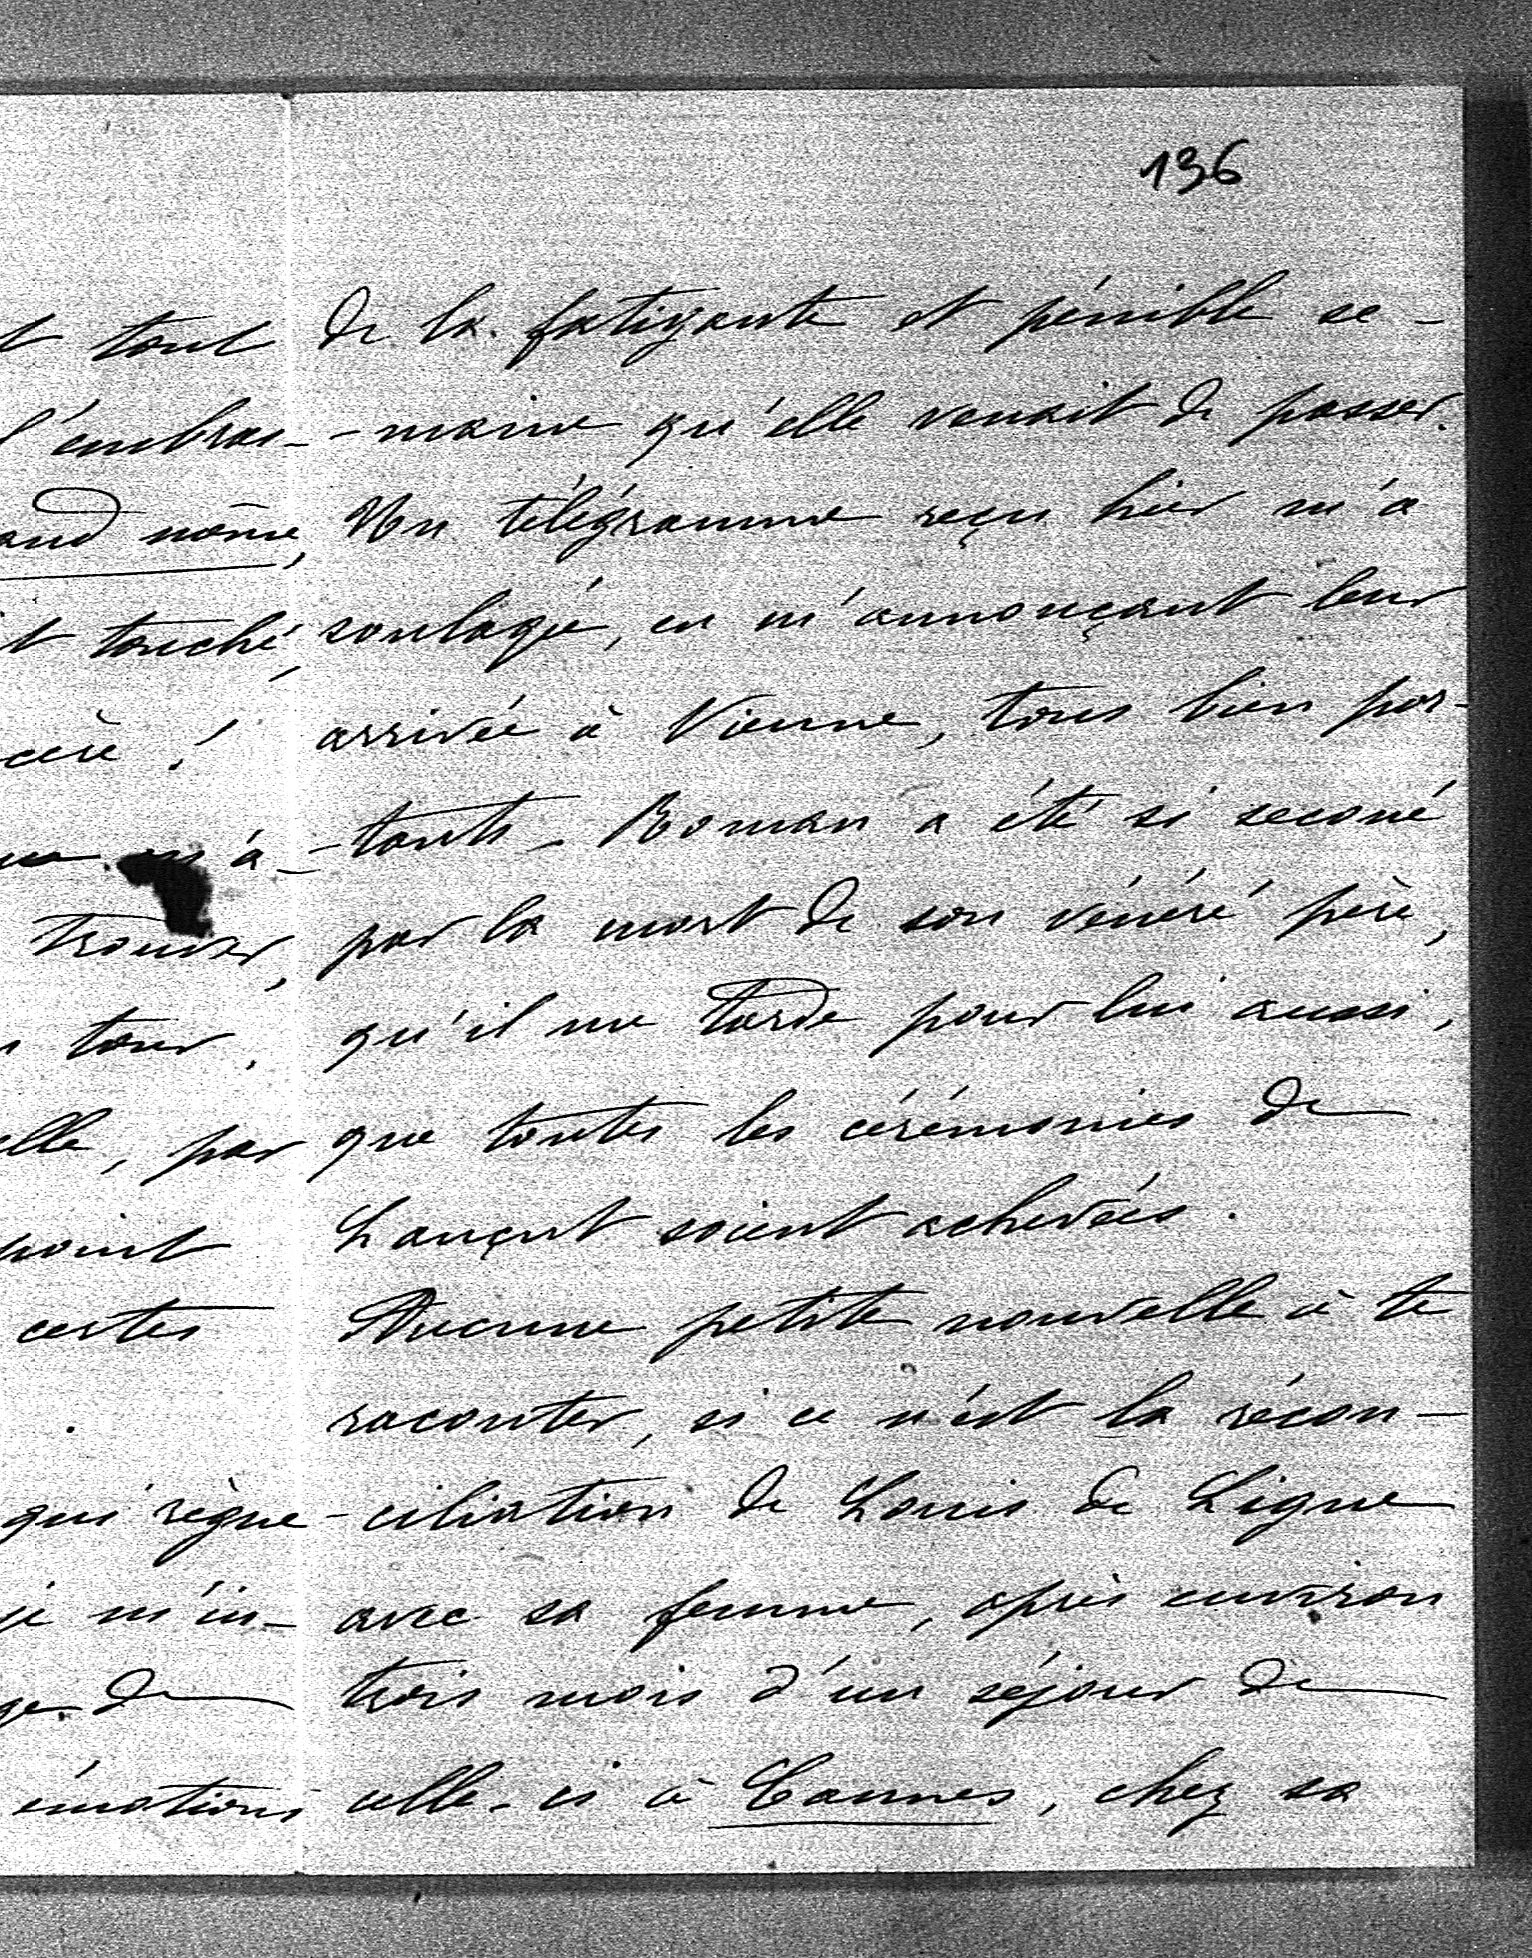 136
de la fatigante et pénible se-
-maine qu'elle venait de passer.
Un télégramme reçu hier m'a
soulagé, en m'annonçant leur
arrivée à Vienne, tous bien por-
-tants - Roman a été si secoué
par la mort de son vénéré père,
qu'il me tarde pour lui aussi,
que toutes les cérémonies de
Lançut soient achevées.
Aucune petite nouvelle à te
raconter, si ce n'est la récon-
-ciliation de Louis de Ligne
avec sa femme, après environ
trois mois d'un séjour de
celle-ci à Cannes, chez sa
t tout
l'embras-
and même,
it touché,
cère !
m'a
trouver,
tour,
elle, par
point
certes
.
qui règne
je m'in-
de
émotions